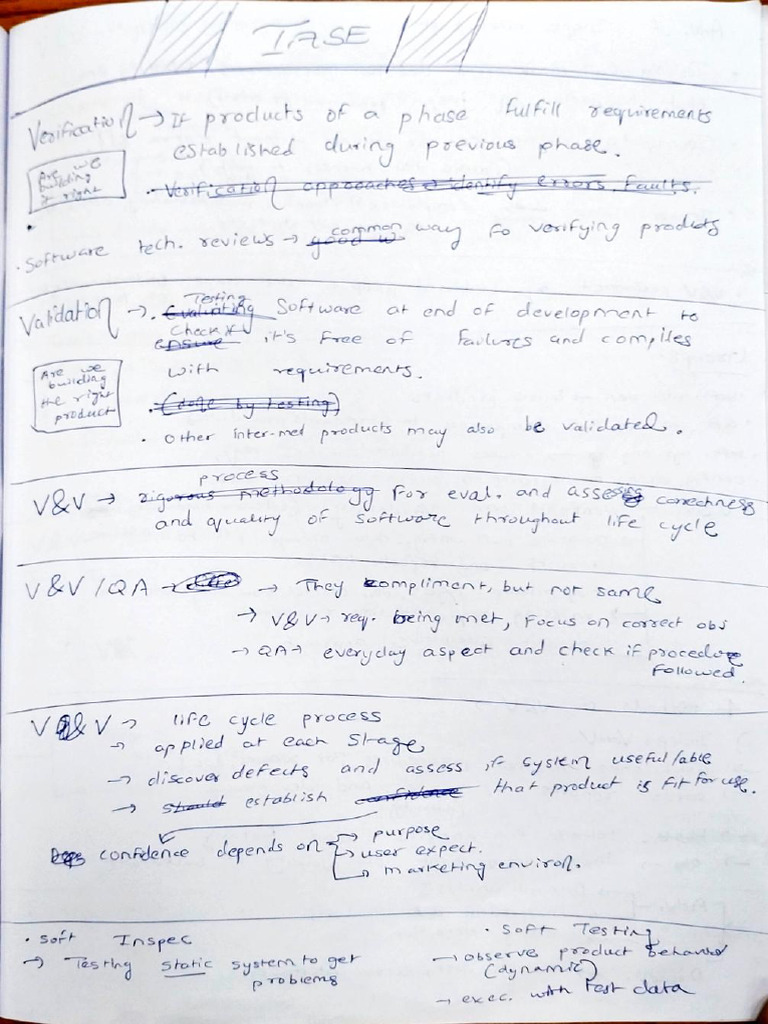 IASE
Verification → If products of a phase fulfill requirements
established during previous phase.
Are we
building
it right
· Verification approaches → identify errors, faults.
· Software tech. reviews → good w common way fo verifying products
Validation → · Evaluating Testing Software at end of development to
ensure Check if it's free of failures and compiles
with requirements.
Are we
building
the right
product
· (done by testing)
· other inter-med products may also be validated.
V&V → rigorous methodology process for eval. and assess correctness
and quality of software throughout life cycle
V&V/QA → → They compliment, but not same
→ V&V → req. being met, Focus on correct obs
→ QA → everyday aspect and check if procedure
followed.
V&V → life cycle process
→ applied at each stage
→ discover defects and assess if system useful/able
→ should establish confidence that product is fit for use.
confidence depends on → purpose
→ user expect.
→ marketing environ.
· Soft Inspec
→ Testing static system to get
problems
· Soft Testing
→ observe product behavior
(dynamic)
→ exec. with test data